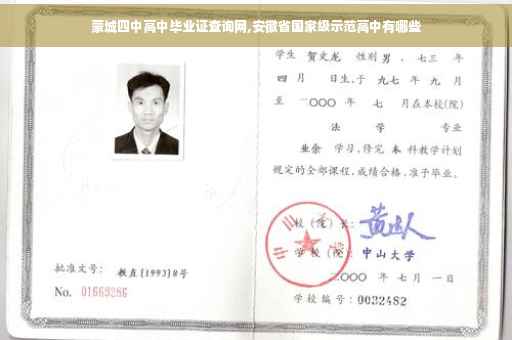 蒙城四中高中毕业证查询网,安徽省国家级示范高中有哪些
学生 贺文龙 性别 男 、七三 年
四 月 日生,于 九七 年 九 月
至 二〇〇〇 年 七 月在本校(院)
法 学 专业
业余 学习,修完 本 科教学计划
规定的全部课程,成绩合格,准予毕业。
校(院)长:
学校(院): 中山大学
二〇〇〇 年 七 月 一 日
学校编号: 0032482
批准文号: 教直[1993]8号
No. 01669286